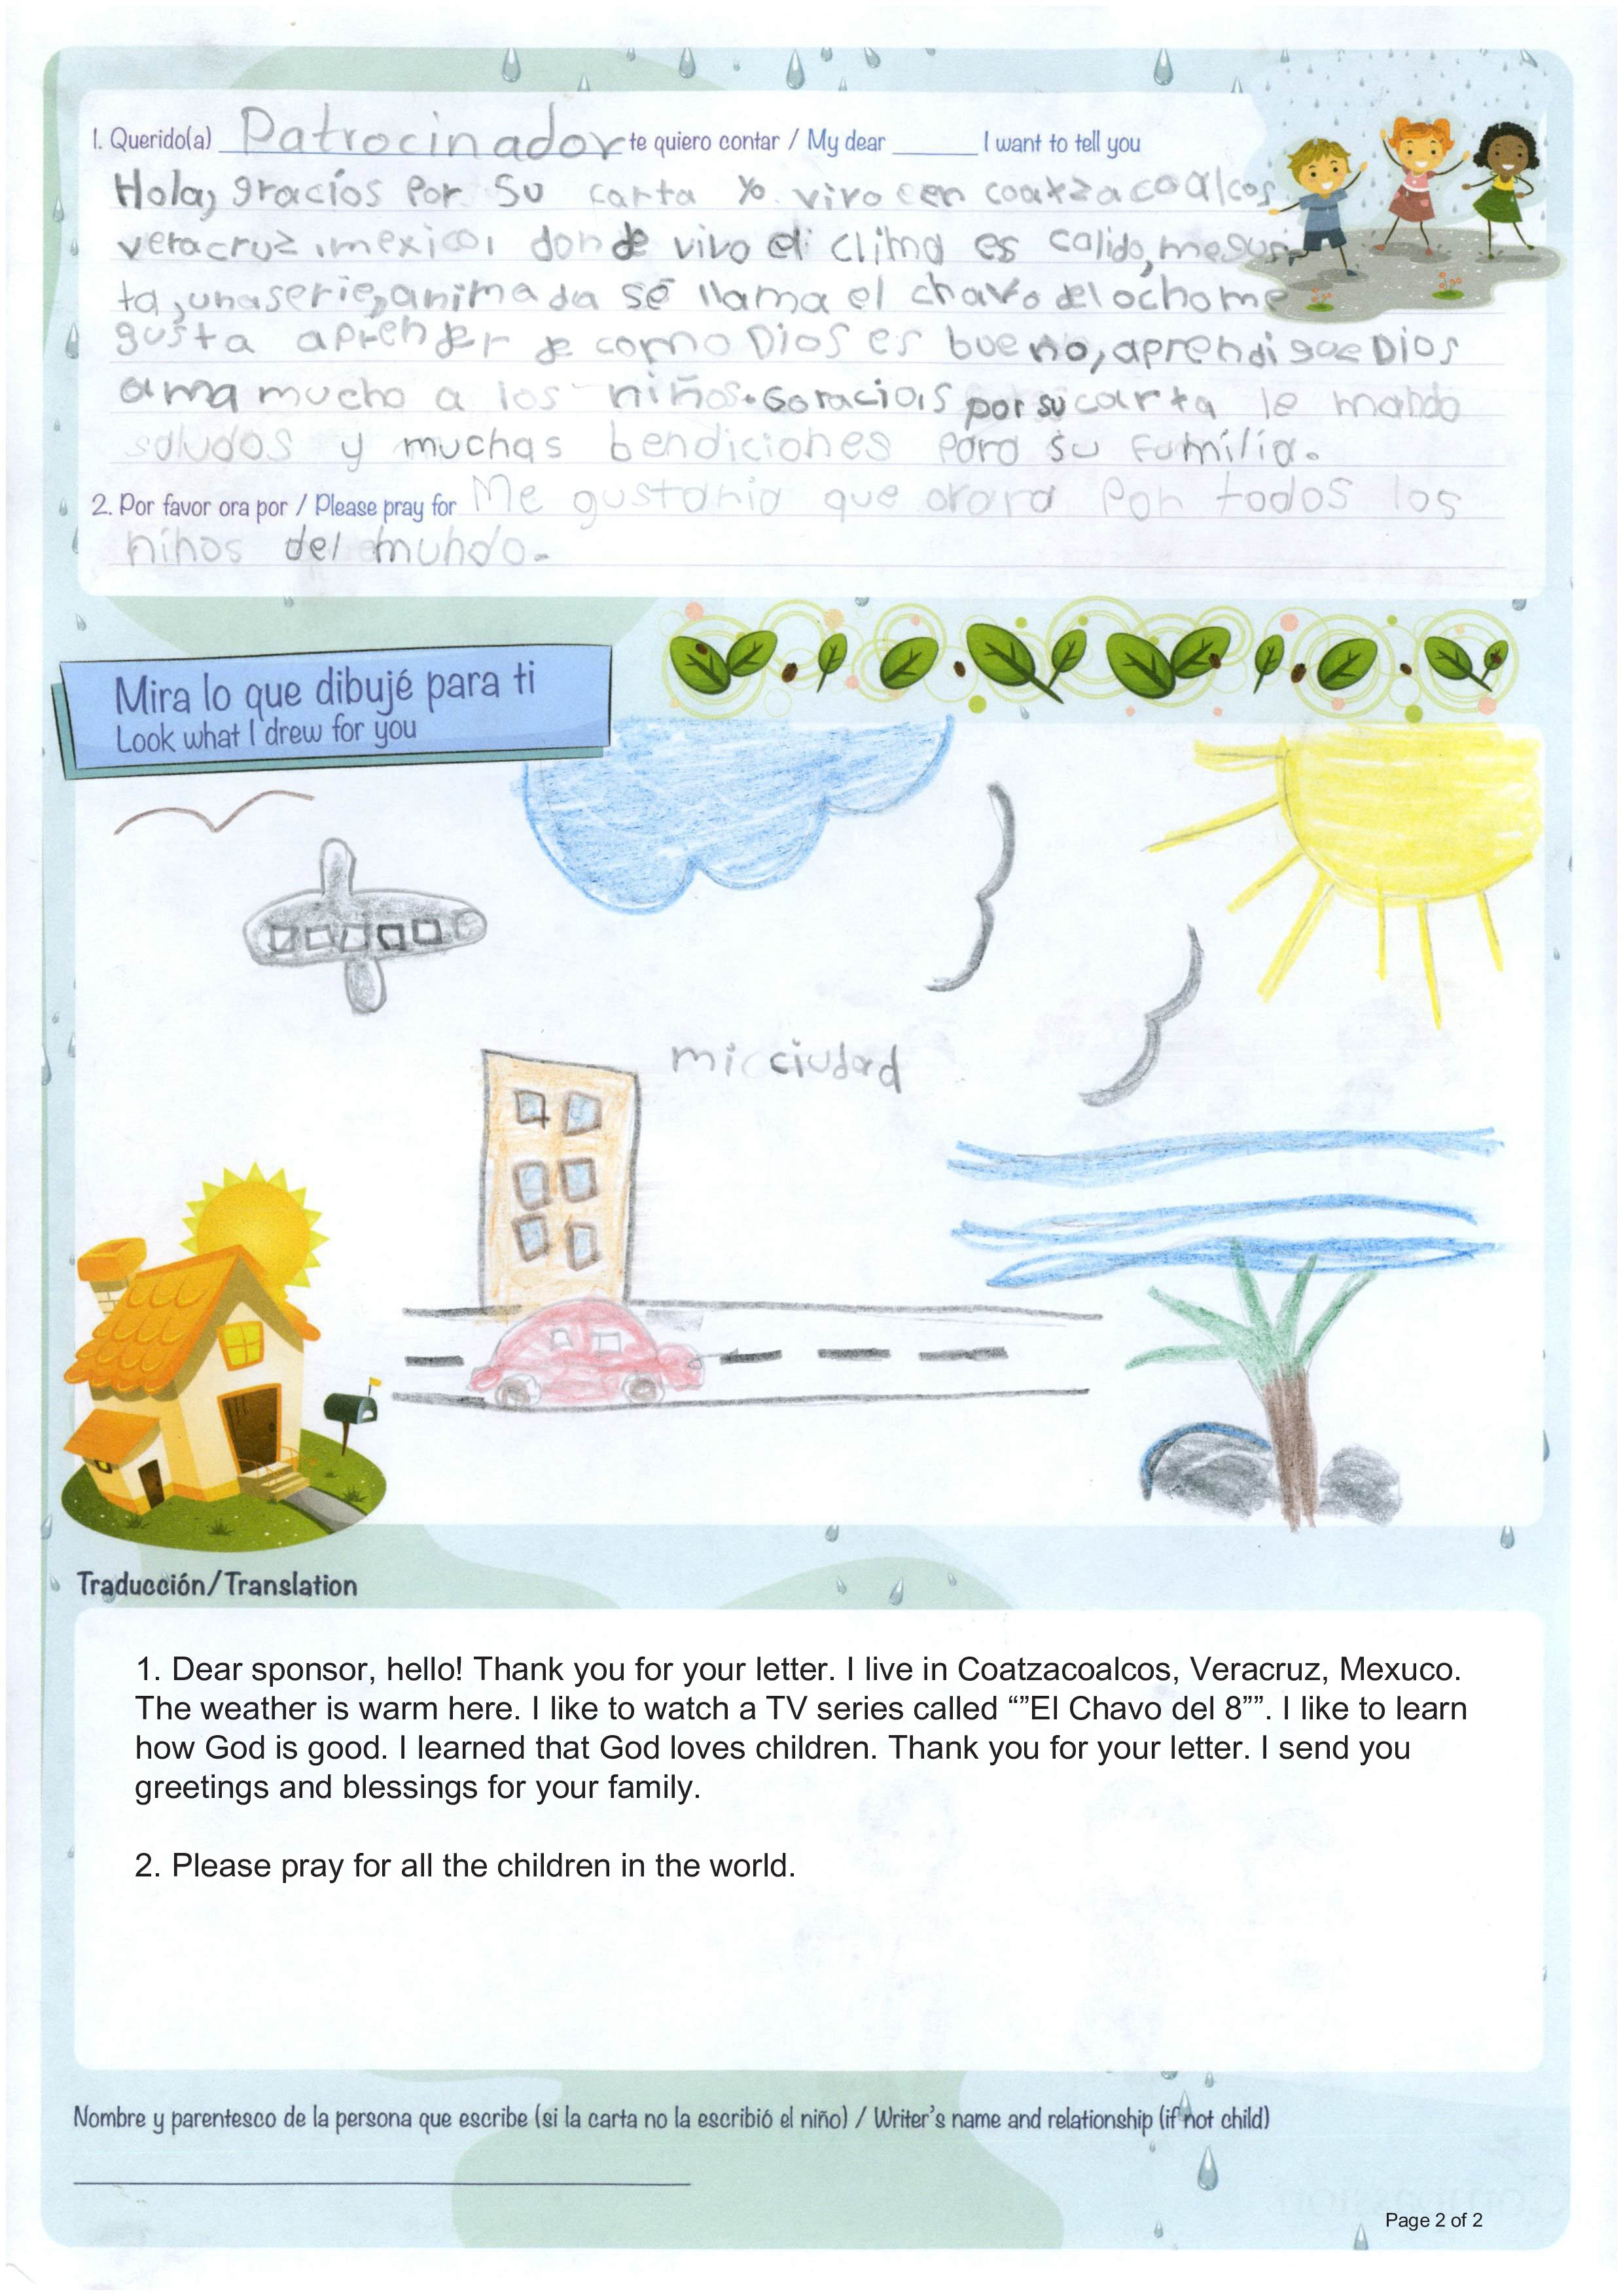 1. Querido(a) Patrocinador te quiero contar / My dear ______ I want to tell you
Hola, gracios por su carta yo vivo en coatzacoalcos
veracruz, mexico, donde vivo el clima es calido, me gus
ta, una serie, animada se llama el chavo del ocho me
gusta aprender de como Dios es bueno, aprendi que Dios
ama mucho a los niños. Goracias por su carta le mando
saludos y muchas bendiciones para su familia.
2. Por favor ora por / Please pray for Me gustaria que orara por todos los
niños del mundo.
Mira lo que dibujé para ti
Look what I drew for you
mi ciudad
Traducción/Translation
1. Dear sponsor, hello! Thank you for your letter. I live in Coatzacoalcos, Veracruz, Mexuco.
The weather is warm here. I like to watch a TV series called “”El Chavo del 8””. I like to learn
how God is good. I learned that God loves children. Thank you for your letter. I send you
greetings and blessings for your family.
2. Please pray for all the children in the world.
Nombre y parentesco de la persona que escribe (si la carta no la escribió el niño) / Writer's name and relationship (if not child)
Page 2 of 2